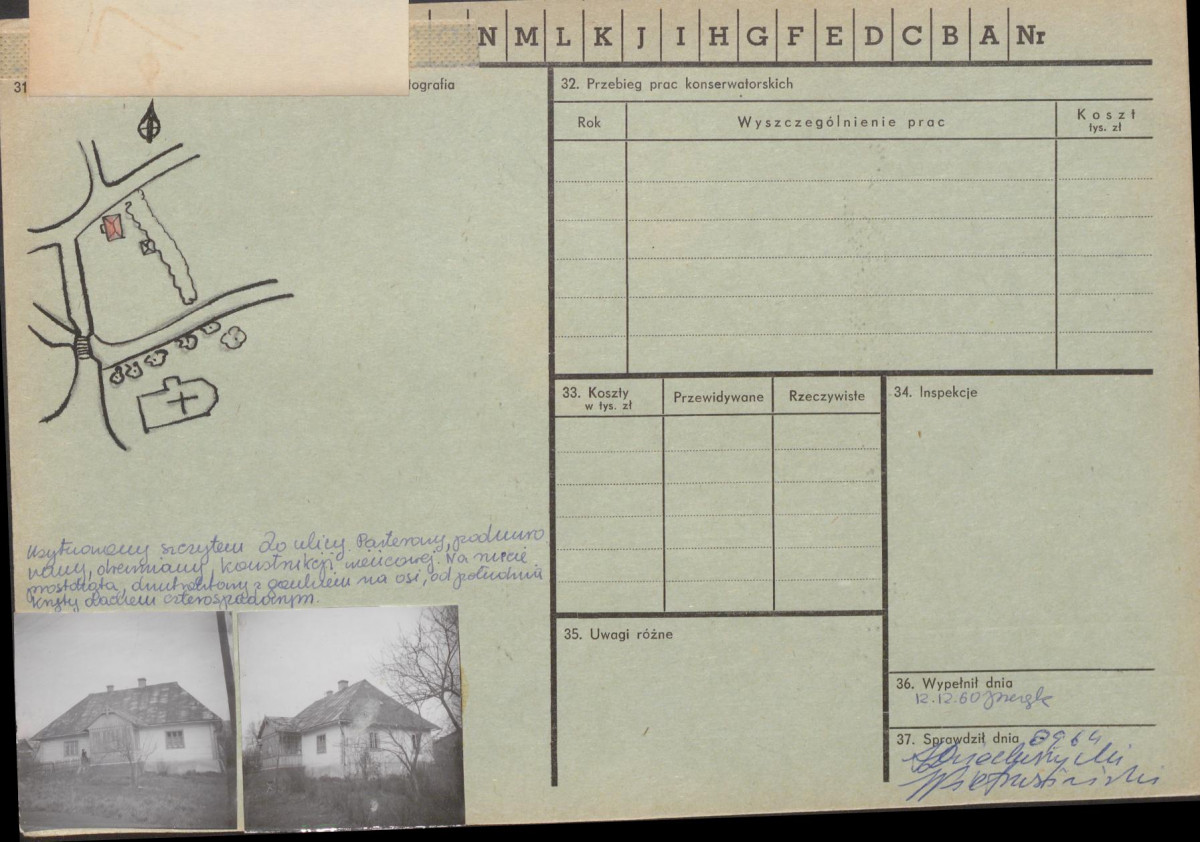 N M L K J I H G F E D C B A Nr
31
tografia
32. Przebieg prac konserwatorskich
Rok
Wyszczególnienie prac
Koszt
tys. zł
33. Koszty
w tys. zł
Przewidywane
Rzeczywiste
34. Inspekcje
Usytuowany szczytem do ulicy. Parterowy, podmuro
wany, drewniany, konstrukcji wieńcowej. Na rzucie
prostokąta, dwutraktowy z gankiem na osi, od południa
Kryty dachem czterospadowym.
35. Uwagi różne
36. Wypełnił dnia
12.12.60
37. Sprawdził dnia